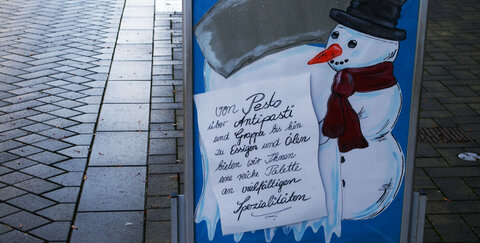 von Pesto
über Antipasti
und Grappa bis hin
zu Essigen und Ölen
bieten wir Ihnen
eine reiche Palette
an vielfältigen
Spezialitäten